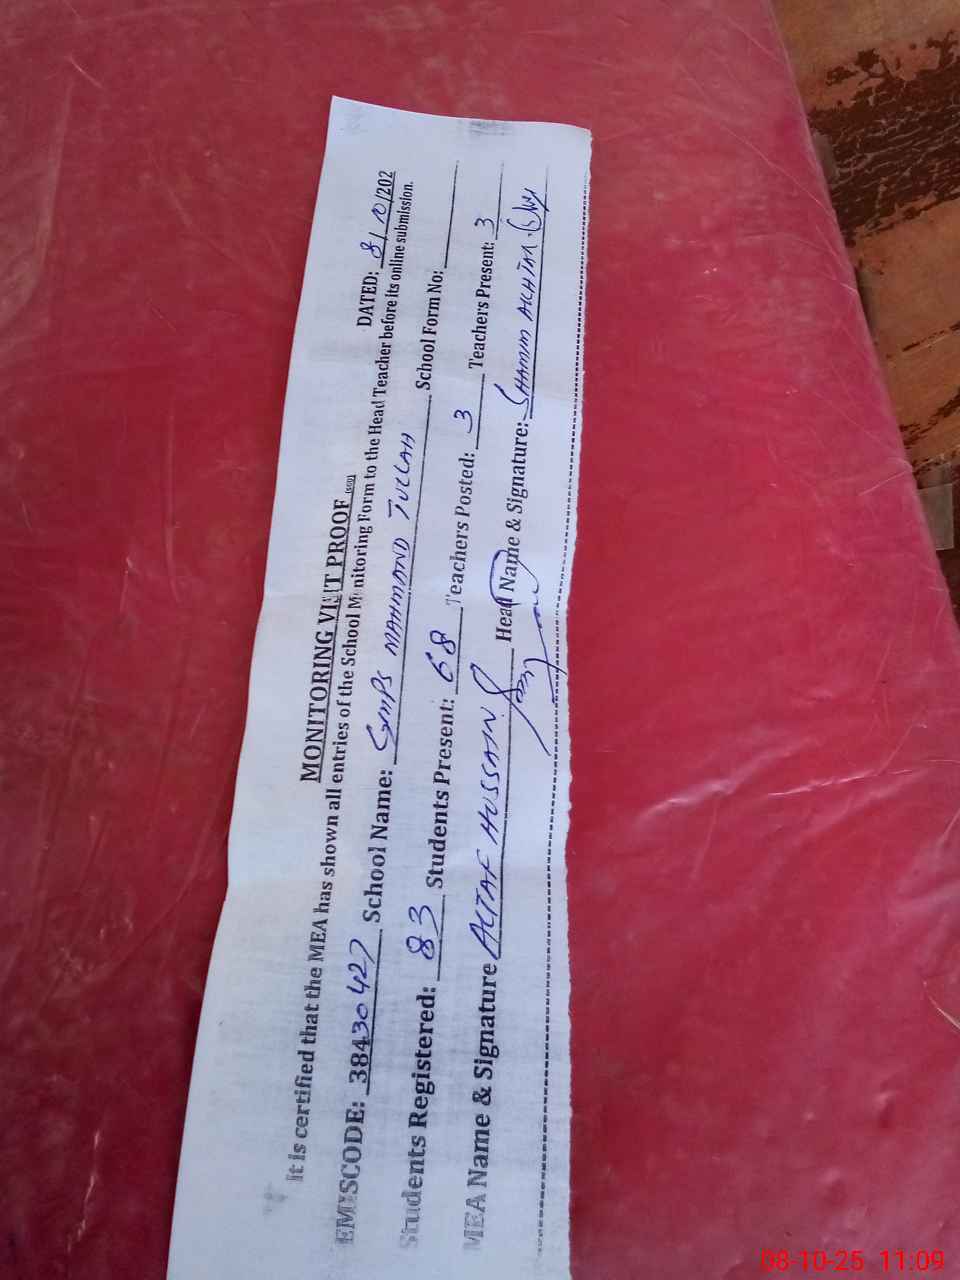 MONITORING VISIT PROOF
DATED: 8/10/202
It is certified that the MEA has shown all entries of the School Monitoring Form to the Head Teacher before its online submission.
EMISCODE: 38430427 School Name: GMPS MAHMAND TULLAH School Form No:
Students Registered: 83 Students Present: 68 Teachers Posted: 3 Teachers Present: 3
MEA Name & Signature ALTAF HUSSAIN Head Name & Signature: SHAMIM AKHTAR
08-10-25 11:09